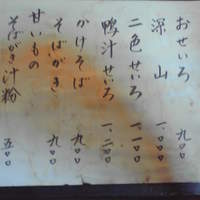 おせいろ 九〇〇
深山 一、〇〇〇
二色せいろ 一、一〇〇
鴨汁せいろ 一、二〇〇
かけそば 九〇〇
そばがき 九〇〇
甘いもの
そばがき汁粉 五〇〇